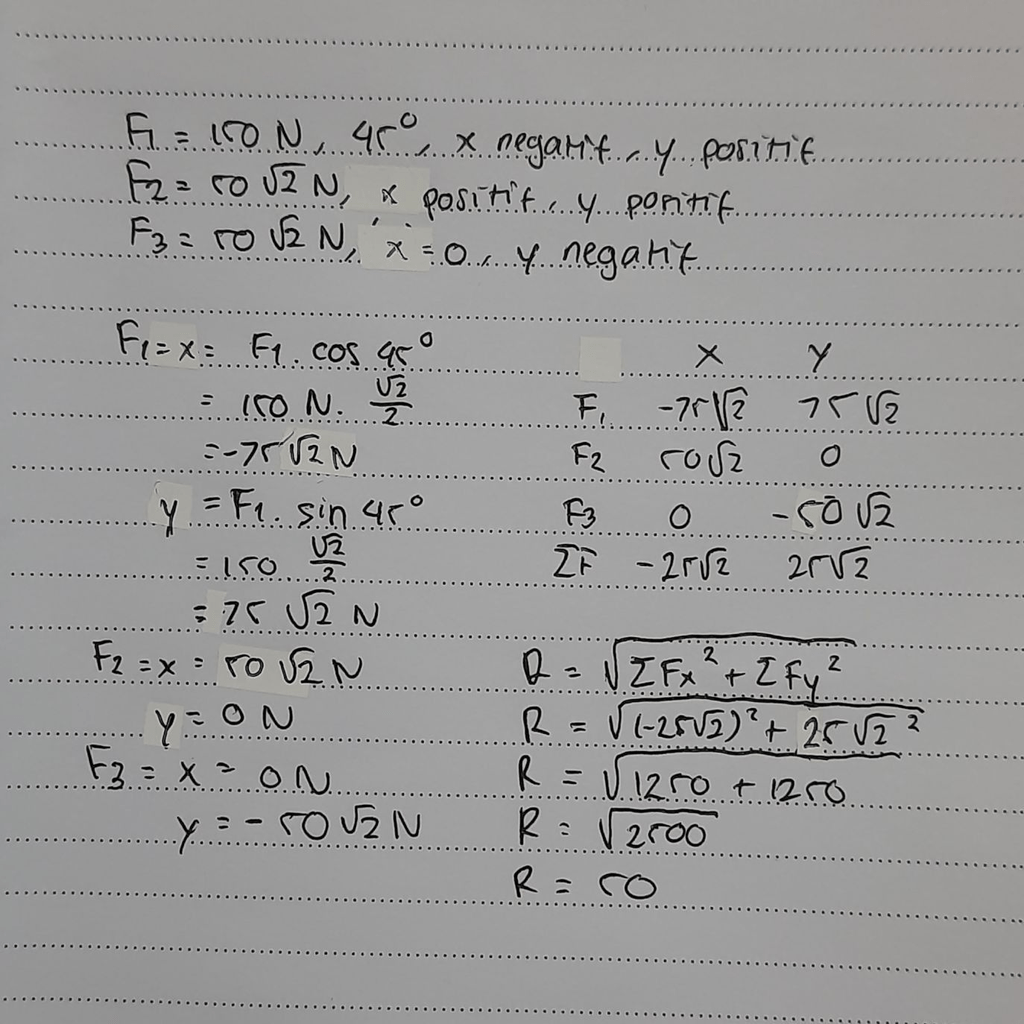 F1 = 150 N, 45°, x negatif, y positif
F2 = 50 √2 N, x positif, y positif
F3 = 50 √2 N, x = 0, y negatif
F1 = x = F1 . cos 45°
= 150 N. √2/2
= -75 √2 N
y = F1 . sin 45°
= 150 √2/2
= 75 √2 N
F2 = x = 50 √2 N
y = 0 N
F3 = x = 0 N
y = - 50 √2 N
X Y
F1 -75√2 75√2
F2 50√2 0
F3 0 -50√2
ΣF -25√2 25√2
R = √ΣFx² + ΣFy²
R = √(-25√2)² + 25√2²
R = √1250 + 1250
R = √2500
R = 50